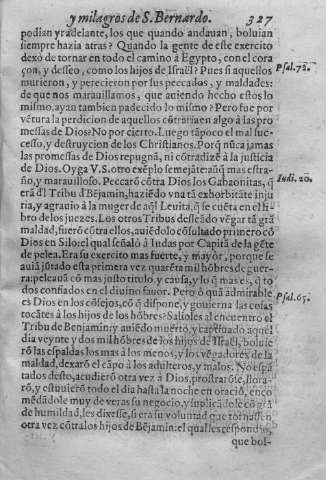 y milagros de S. Bernardo. 327
podian yr adelante, los que andauan, boluian
siempre hazia atras? Quando la gente de este exercito
dexò de tornar en todo el camino à Egypto, con el cora
çon, y desseo, como los hijos de Israël? Pues si aquellos
Psal. 72.
murieron, y perecieron por sus peccados, y maldades:
de que nos marauillamos, que auiendo hecho estos lo
mismo, ayan tambien padecido lo mismo? Pero fue por
vētura la perdicion de aquellos cōtraria en algo à las pro
messas de Dios? No por cierto. Luego tāpoco el mal suc-
cesso, y destruycion de los Christianos. Porq̄ nūca jamas
las promessas de Dios repugnā, ni cōtradizē à la justicia
de Dios. Oyga V.S. otro exēplo semejāte: aūq̄ mas estra-
ño, y marauilloso. Peccarō cōtra Dios los Gabaonitas, q̄
Iudi. 20.
erā d'l Tribu d' Bējamin, haziēdo vna tā exhorbitāte iniu
ria, y agrauio à la muger de aq̄l Leuita, q̄ se cuēta en el li-
bro de los juezes. Los otros Tribus desseādo vēgar tā grā
maldad, fuerō cōtra ellos, auiēdolo cōsultado primero cō
Dios en Silo: el qual señalò à Iudas por Capitā de la gēte
de pelea. Era su exercito mas fuerte, y mayor, porque se
auiā jūtado esta primera vez quarēta mil hōbres de guer-
ra: peleauā cō mas justo titulo, y causa, y lo q̄ mas es, q̄ to
dos confiados en el diuino fauor. Pero ò quā admirable
es Dios en los cōsejos, cō q̄ dispone, y gouierna las cosas
Psal. 65.
tocātes à los hijos de los hōbres? Salioles al encuentro el
Tribu de Benjamin: y auiēdo muerto, y captiuado aquel
dia veynte y dos mil hōbres de los hijos de Israël, boluie-
rō las espaldas los mas à los menos, y los vēgadores de la
maldad, dexarō el cāpo à los adulteros, y malos. No espā
tados desto, acudierō otra vez à Dios, prostrarōse, llora-
rō, y estuuierō todo el dia hasta la noche en oraciō, enco
mēdādole muy de veras su negocio, y suplicādole cō grā
de humildad, les dixesse, si era su voluntad que tornassen
otra vez cōtra los hijos de Bējamin: el qual les respondio,
que bol-